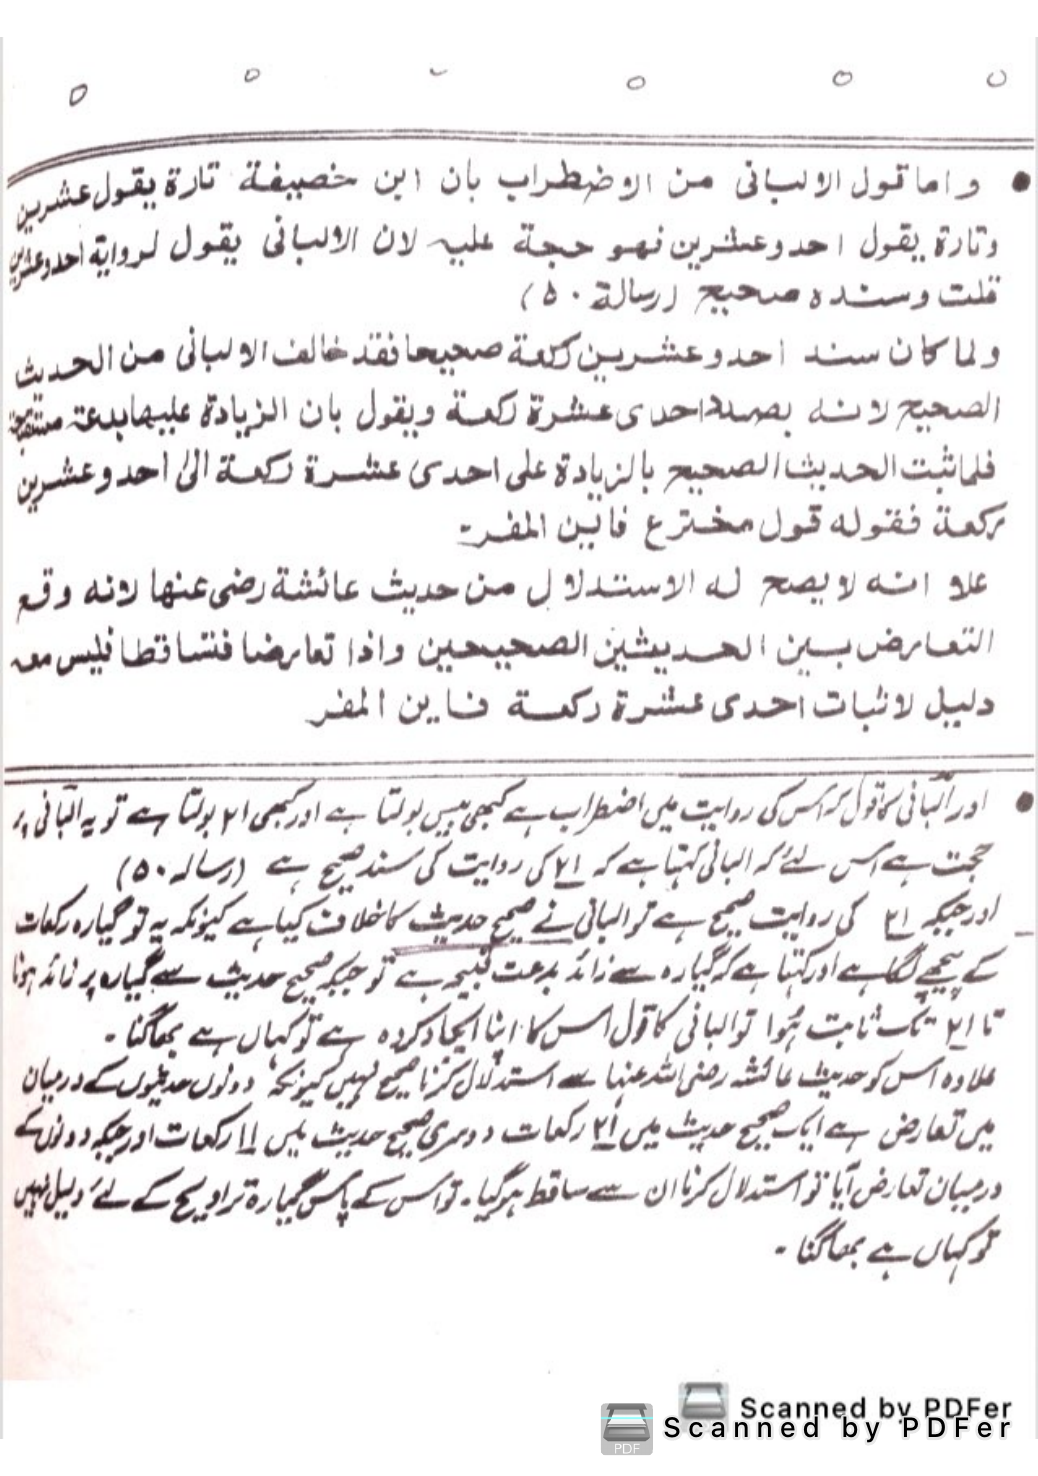 واما قول الالبانى من الاضطراب بان ابن خصيفة تارة يقول عشرين
وتارة يقول احدوعشرين فهو حجة عليه لان الالبانى يقول لرواية احدوعشرين
قلت وسنده صحيح (رسالة ٥٠)
ولما كان سند احدوعشرين ركعة صحيحا فقد خالف الالبانى من الحديث
الصحيح لانه بصدد احدى عشرة ركعة ويقول بان الزيادة عليها بدعة
فلما ثبت الحديث الصحيح بالزيادة على احدى عشرة ركعة الى احدوعشرين
ركعة فقوله قول مخترع فاين المفر۔
علا انه لا يصح له الاستدلال من حديث عائشة رضى عنها لانه وقع
التعارض بين الحديثين الصحيحين واذا تعارضا فتساقطا فليس معه
دليل لاثبات احدى عشرة ركعة فاين المفر
اور البانی کا قول کہ اس کی روایت میں اضطراب ہے کبھی بیس بولتا ہے اور کبھی ۲۱ بولتا ہے تو یہ البانی پر
حجت ہے اس لئے کہ البانی کہتا ہے کہ ۲۱ کی روایت کی سند صحیح ہے (رسالہ ۵۰)
اور جبکہ ۲۱ کی روایت صحیح ہے تو البانی نے صحیح حدیث کا خلاف کیا ہے کیونکہ یہ تو گیارہ رکعات
کے پیچھے لگا ہے اور کہتا ہے کہ گیارہ سے زائد بدعت قبیحہ ہے تو جبکہ صحیح حدیث سے گیارہ پر زائد ہونا
تا ۲۱ تک ثابت ہوا تو البانی کا قول اس کا اپنا ایجاد کردہ ہے تو کہاں ہے بھاگنا ۔
علاوہ اس کو حدیث عائشہ رضی اللہ عنہا سے استدلال کرنا صحیح نہیں کیونکہ دونوں حدیثوں کے درمیان
میں تعارض ہے ایک صحیح حدیث میں ۲۱ رکعات دوسری صحیح حدیث میں ۱۱ رکعات اور جبکہ دونوں کے
درمیان تعارض آیا تو استدلال کرنا ان سے ساقط ہو گیا۔ تو اس کے پاس گیارہ تراویح کے لئے دلیل نہیں
تو کہاں ہے بھاگنا ۔
Scanned by PDFer
Scanned by PDFer
PDF